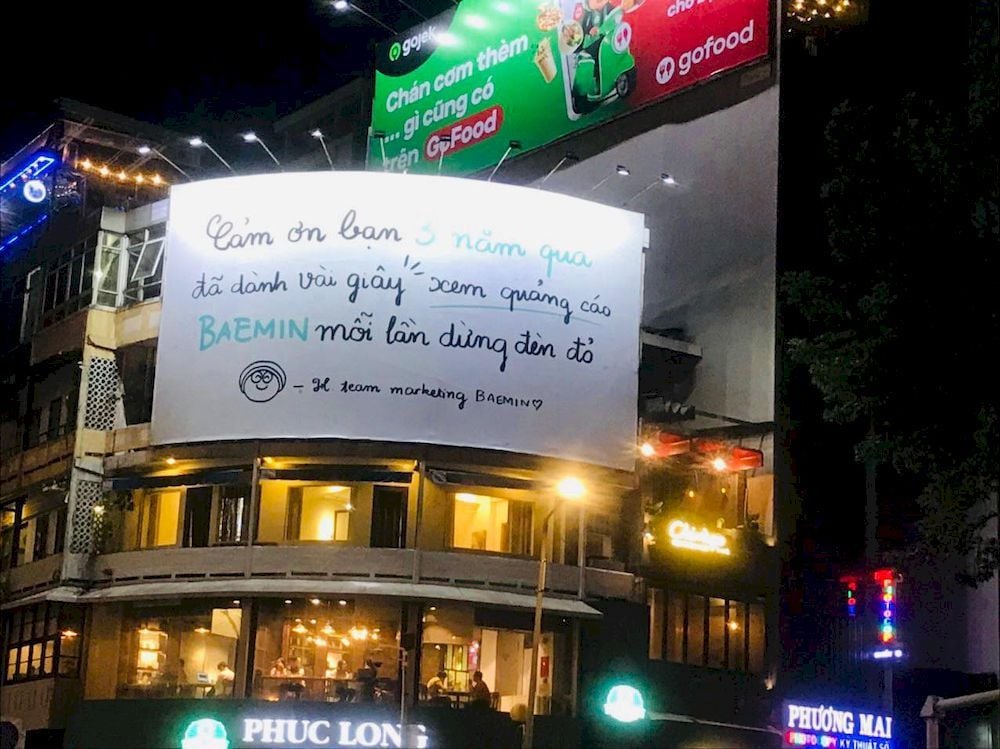 gojek
Chán cơm thèm
... gì cũng có
trên GoFood
gofood
Cảm ơn bạn 3 năm qua
đã dành vài giây xem quảng cáo
BAEMIN mỗi lần dừng đèn đỏ
team marketing BAEMIN
PHUC LONG
PHƯƠNG MAI
KỸ THUẬT SỐ